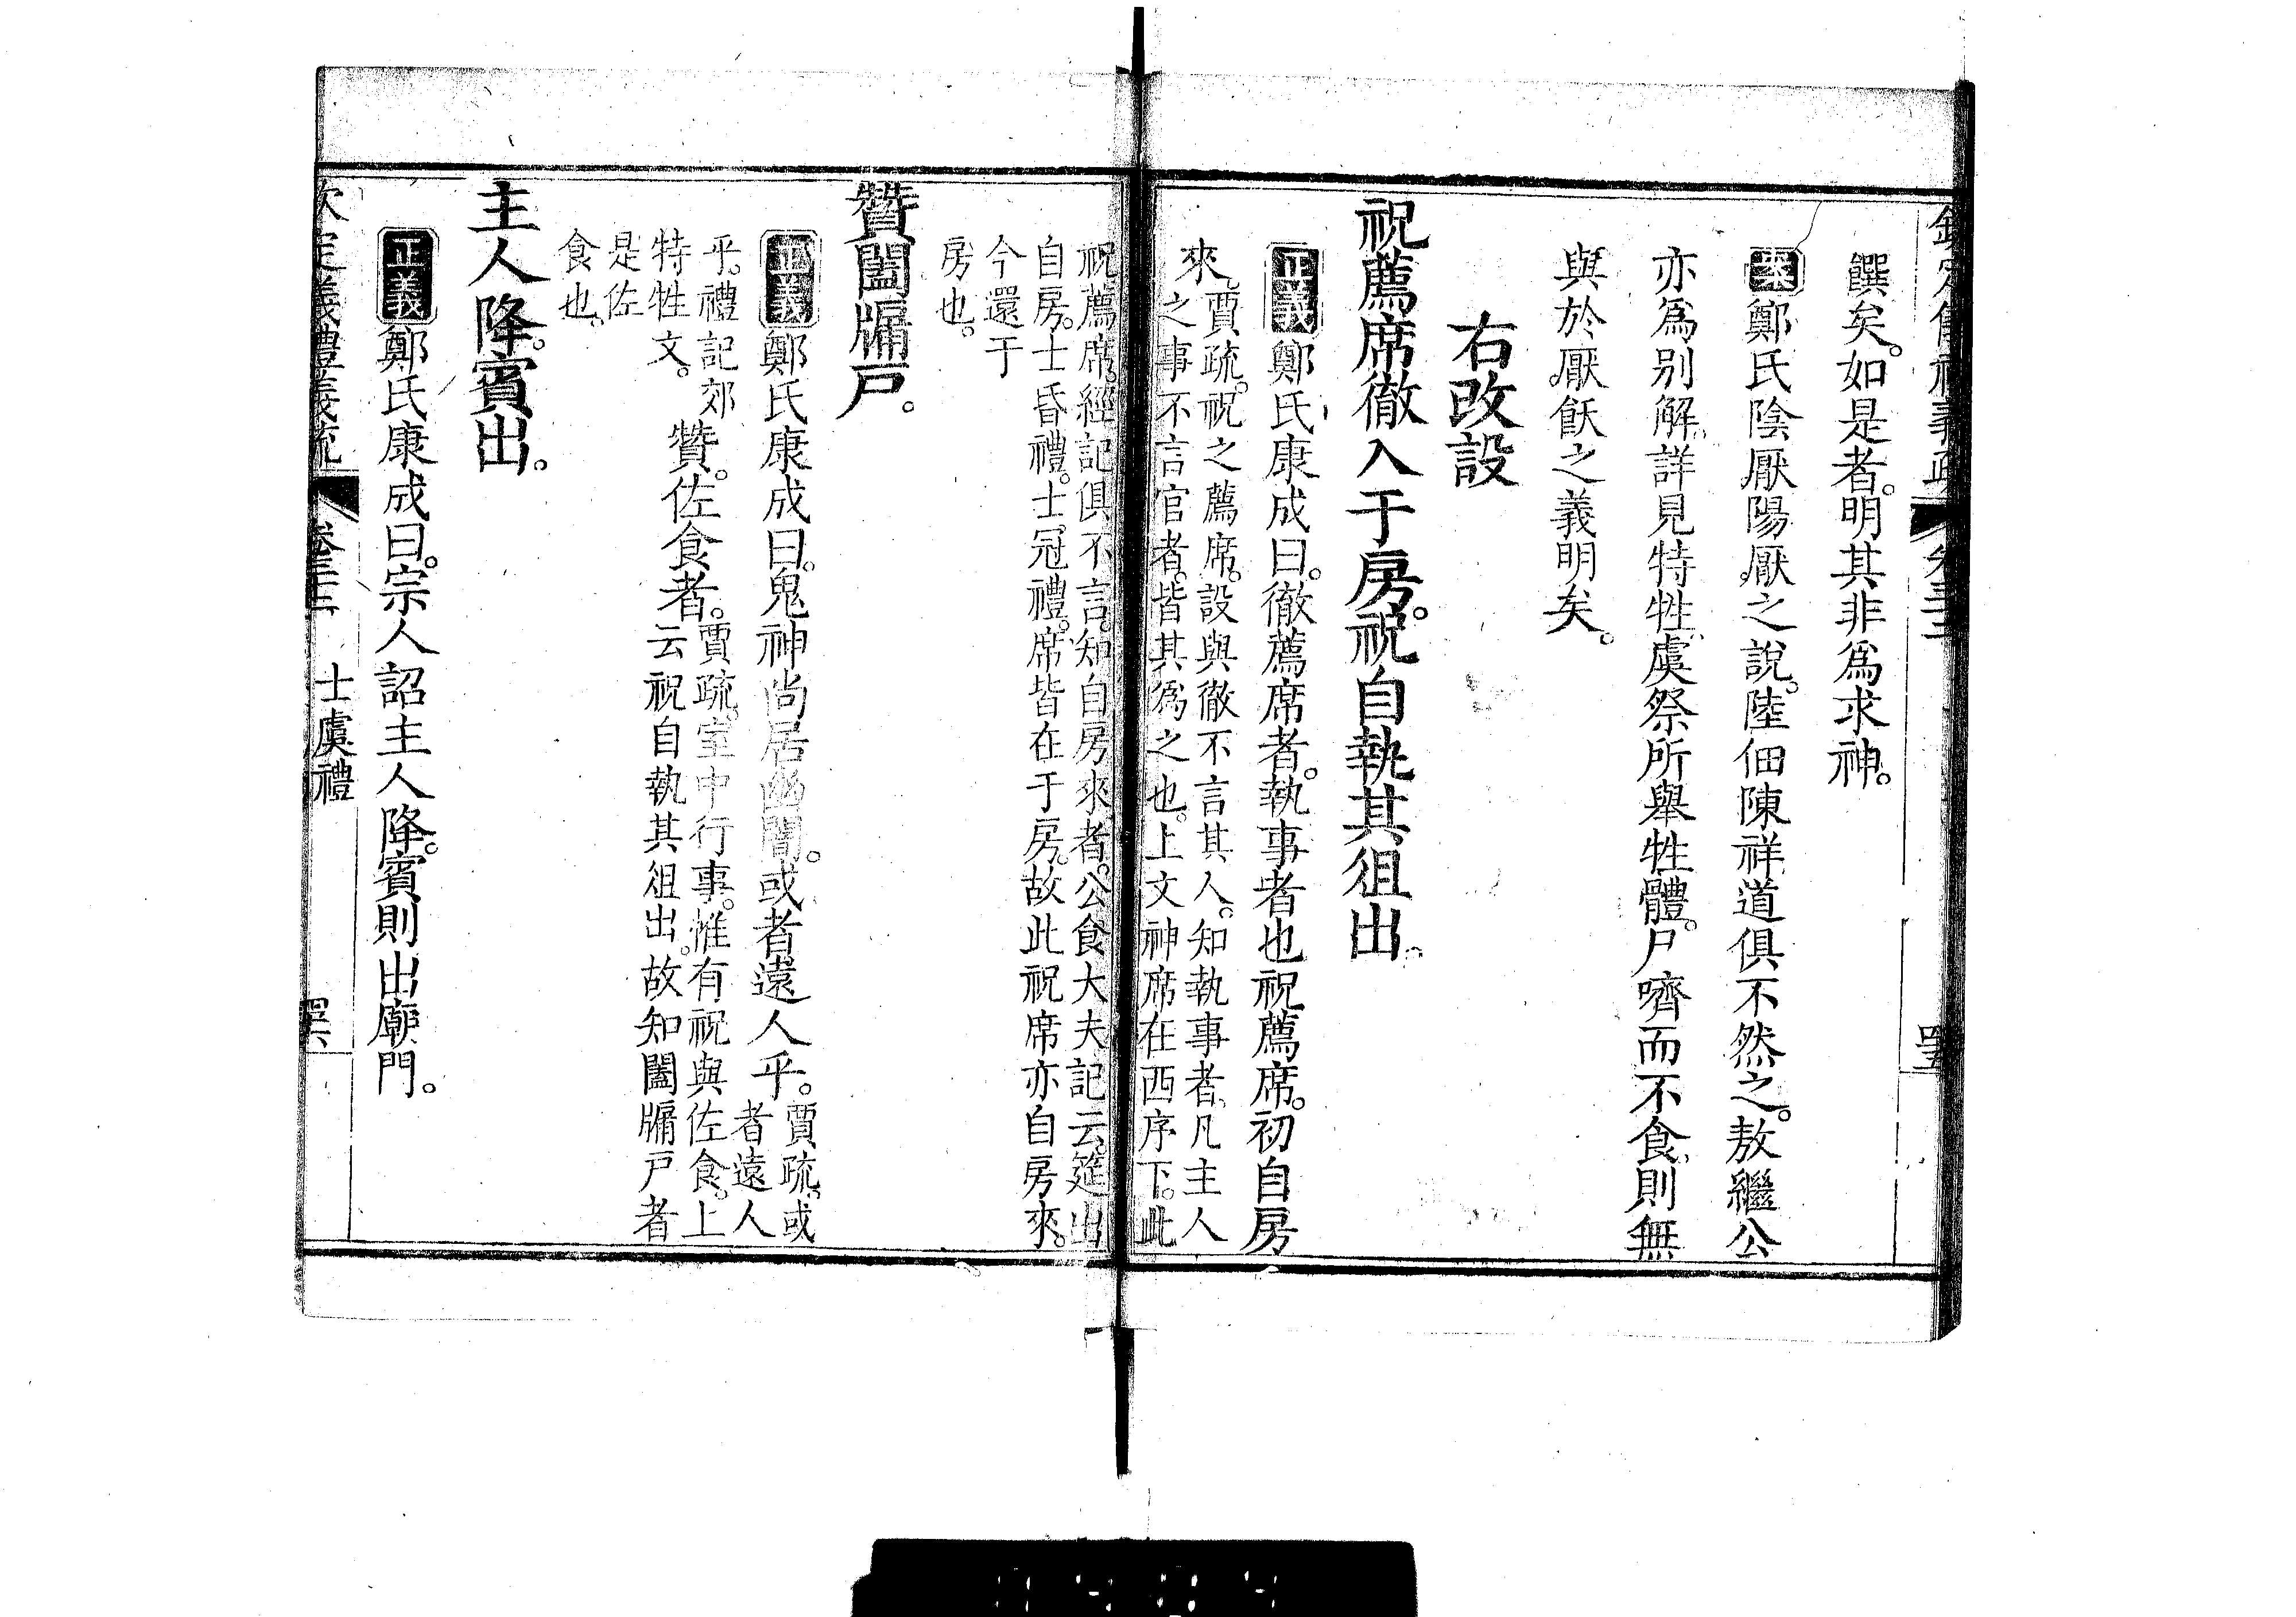 欽定儀禮義疏 卷三十三 罢
饌矣。如是者。明其非爲求神。
案鄭氏陰厭陽厭之說。陸佃陳祥道俱不然之。敖繼公
亦爲別解。詳見特牲。虞祭所舉牲體。尸嚌而不食。則無
與於厭飫之義明矣。
右改設
祝薦席徹入于房。祝自執其俎出。
正義鄭氏康成曰。徹薦席者。執事者也祝薦席。初自房
來。賈疏。祝之薦席。設與徹不言其人。知執事者。凡主人
之事不言官者。皆其爲之也。上文神席在西序下。此
祝薦席。經記俱不言。知自房來者。公食大夫記云。筵出
自房。士昏禮。士冠禮。席皆在于房。故此祝席亦自房來。
今還于
房也。
贊闔牖戶。
正義鄭氏康成曰。鬼神尚居幽闇。或者遠人乎。賈疏。或
者遠人
乎。禮記郊
特牲文。
贊。佐食者。賈疏。室中行事。惟有祝與佐食。上
云祝自執其俎出。故知闔牖戶者
是佐
食也。
主人降。賓出。
正義鄭氏康成曰。宗人詔主人降。賓則出廟門。
欽定義禮義疏 卷三十三 士虞禮